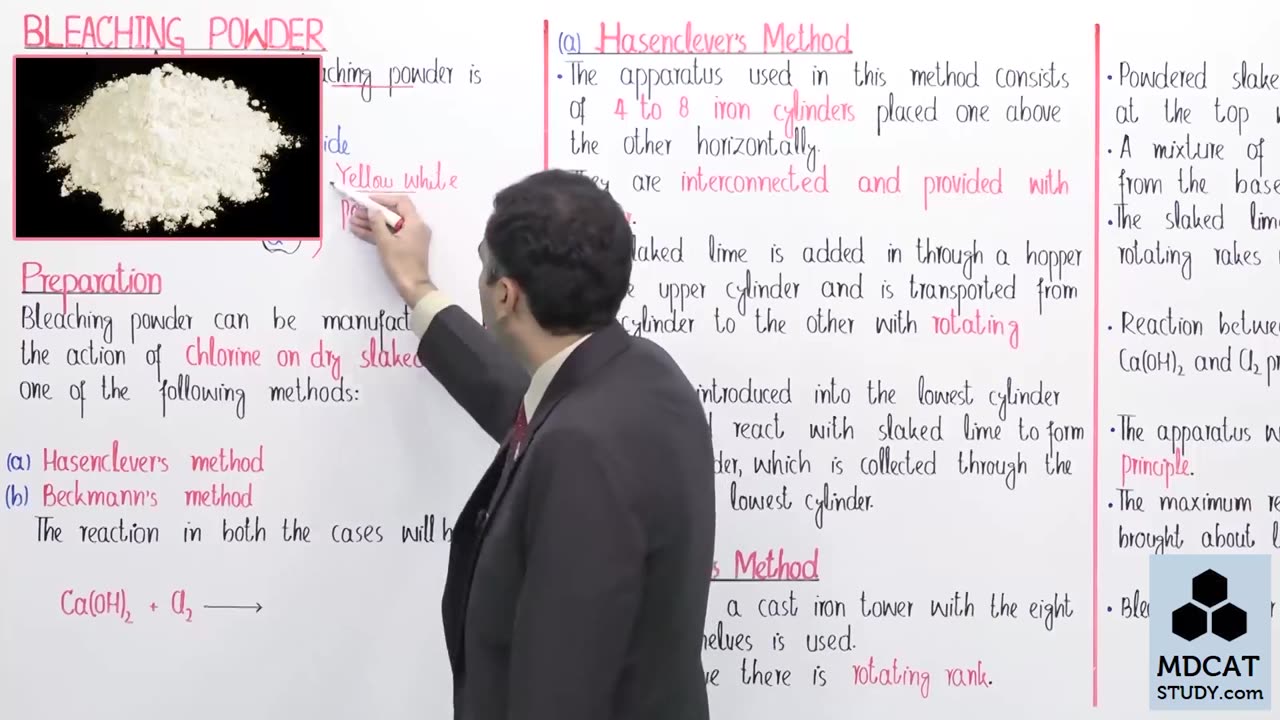 BLEACHING POWDER
powder is
ide
Yellow white
Preparation
Bleaching powder can be
the action of Chlorine on dry slaked
one of the following methods:
(a) Hasenclever's method
(b) Beckmann's method
The reaction in both the cases will
Ca(OH)₂ + Cl₂ ⟶
(a) Hasenclever's Method
• The apparatus used in this method consists
of 4 to 8 iron cylinders placed one above
the other horizontally.
are interconnected and provided with
laked lime is added in through a hopper
upper cylinder and is transported from
cylinder to the other with rotating
introduced into the lowest cylinder
react with slaked lime to form
der, which is collected through the
lowest cylinder.
Method
a cast iron tower with the eight
helves is used.
there is rotating rank.
• Powdered slake
at the top
• A mixture of
from the base
• The slaked lim
rotating rakes
• Reaction betwe
Ca(OH)₂ and Cl₂ p
• The apparatus w
principle.
• The maximum re
brought about
• Ble
MDCAT
STUDY.com